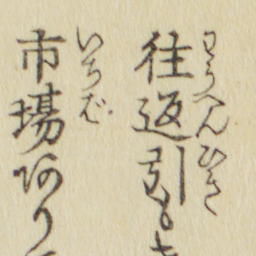 往返引もき
わうへんひき
市場ありて
いちば